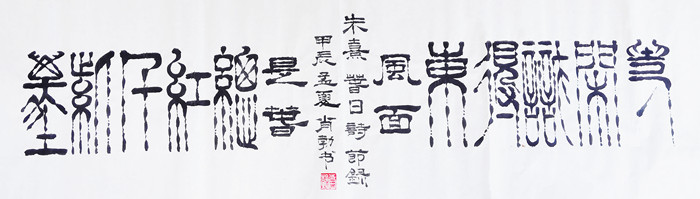 等閑識得東風面
萬紫仟紅總是春
朱熹 春日詩 節錄
甲辰孟夏 肖勃書